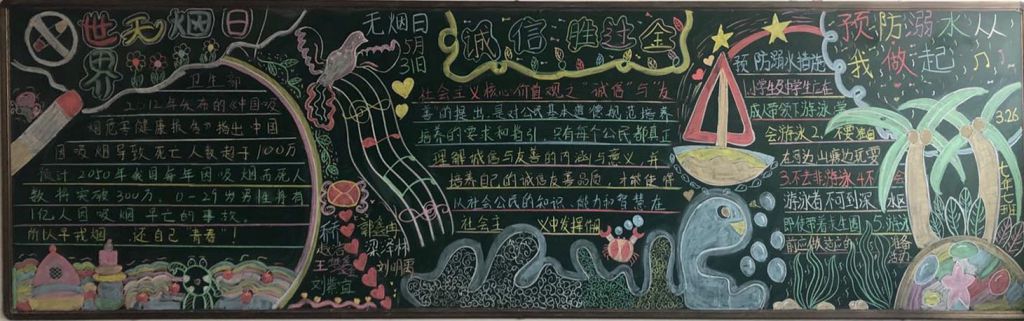 世界无烟日
卫生部
2012年发布的《中国吸
烟危害健康报告》指出中国
因吸烟导致死亡人数超于100万
预计2050年我国每年因吸烟而死人
数将突破300万 0-29岁男性将有
1亿人因吸烟早亡的事故。
所以早戒烟，还自己"青春"！
无烟日
5月
31日
诚信胜过金
社会主义核心价值观之"诚信"与"友
善的提出，是对公民基本道德规范培养
培养的要求和指引，只有每个公民都真正
理解诚信与友善的内涵与意义，并
培养自己的诚信友善品质，才能使得
从社会公民的知识、能力和智慧在
社会主义中发挥
刘紫宜
预防溺水措施
小学生及中学生应在
成带领下游泳，学
会游泳2、不要独自
在河边山塘边玩耍
3.不去非游泳4不会
游泳者不问到深
预防溺水从
我做起
326
七年七班